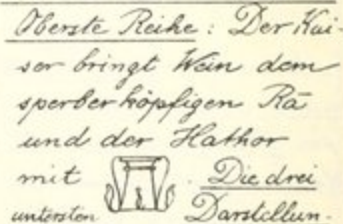 Oberste Reihe: Der Kai-
ser bringt Wein dem
sperberköpfigen Rā
und der Hathor
mit . Die drei
untersten Darstellun-